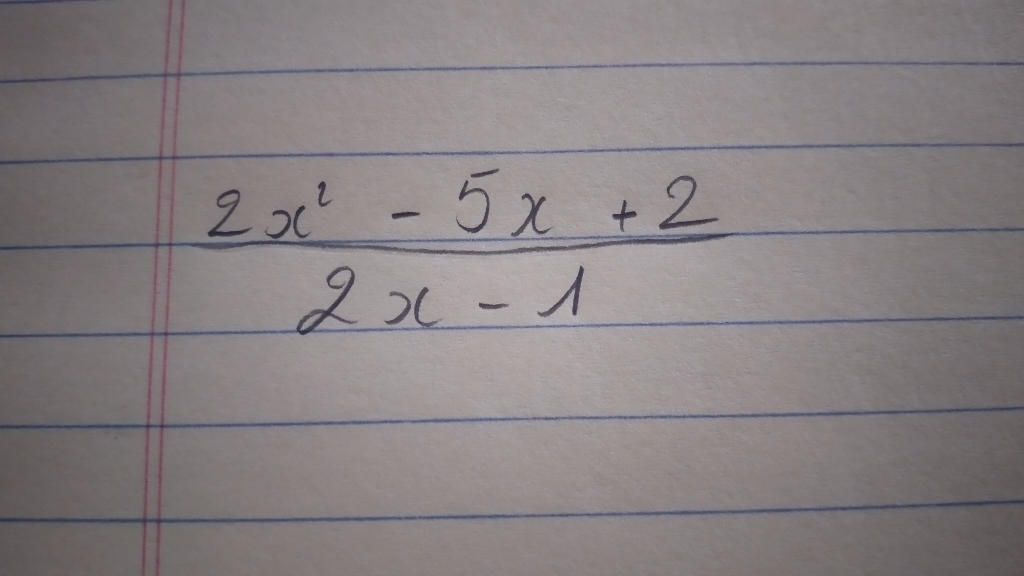 2x² - 5x + 2
2x - 1